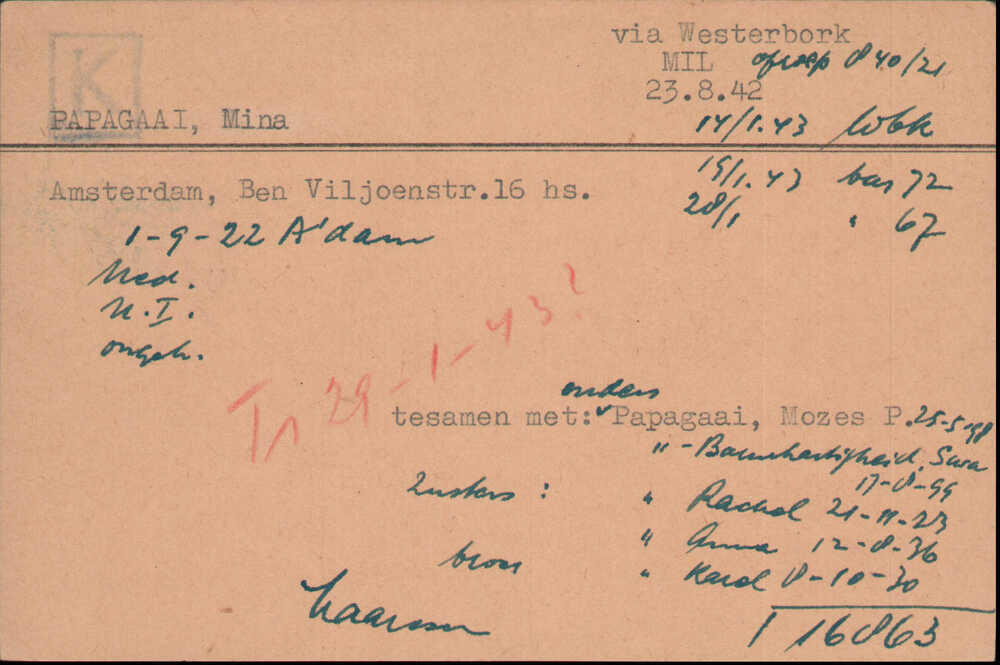 K
via Westerbork
MIL oproep 840/21
23.8.42
PAPAGAAI, Mina
14/1.43 Wbk
Amsterdam, Ben Viljoenstr.16 hs.
19/1.43 bar 72
28/1 " 67
1-9-22 A'dam
Ned.
N.I.
ongeh.
Tr 29-1-43?
ouders
tesamen met: Papagaai, Mozes P. 25-5-98
" - Barmhartigheid, Sara
17-8-99
Zusters : " Rachel 21-11-23
" Anna 12-8-36
broer " Karel 8-10-30
1 16863